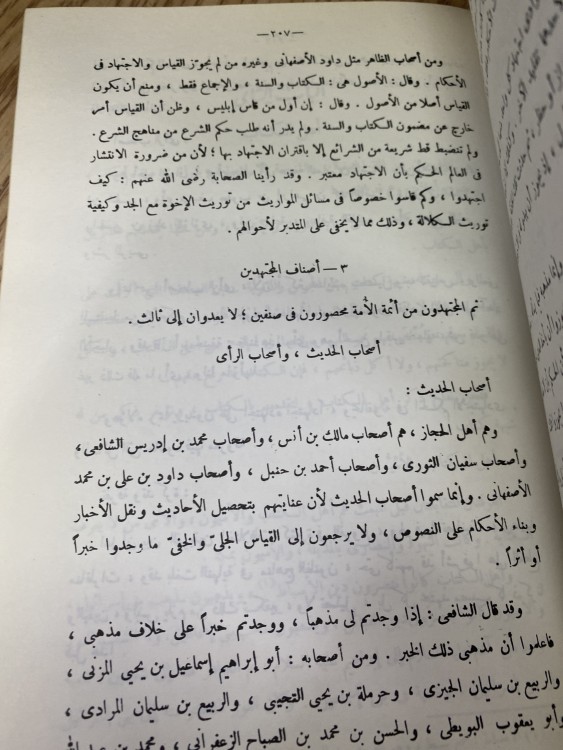 —٢٠٧—
ومن أصحاب الظاهر مثل داود الأصفهانى وغيره من لم يجوّز القياس والاجتهاد فى
الأحكام . وقال : الأصول هى : الكتاب والسنة ، والإجماع فقط ، ومنع أن يكون
القياس أصلا من الأصول . وقال : إن أول من قاس إبليس ، وظن أن القياس أمر
خارج عن مضمون الكتاب والسنة . ولم يدر أنه طلب حكم الشرع من مناهج الشرع .
ولم تنضبط قط شريعة من الشرائع إلا باقتران الاجتهاد بها ؛ لأن من ضرورة الانتشار
فى العالم الحكم بأن الاجتهاد معتبر . وقد رأينا الصحابة رضى الله عنهم : كيف
اجتهدوا ، وكم قاسوا خصوصاً فى مسائل المواريث من توريث الإخوة مع الجد وكيفية
توريث الكلالة ، وذلك مما لا يخفى على المتدبر لأحوالهم .
٣ — أصناف المجتهدين
ثم المجتهدون من أئمة الأمة محصورون فى صنفين ؛ لا يعدوان إلى ثالث .
أصحاب الحديث ، وأصحاب الرأى
أصحاب الحديث :
وهم أهل الحجاز ، هم أصحاب مالك بن أنس ، وأصحاب محمد بن إدريس الشافعى ،
وأصحاب سفيان الثورى ، وأصحاب أحمد بن حنبل ، وأصحاب داود بن على بن محمد
الأصفهانى . وإنما سموا أصحاب الحديث لأن عنايتهم بتحصيل الأحاديث ونقل الأخبار
وبناء الأحكام على النصوص ، ولا يرجعون إلى القياس الجلىّ والخفىّ ما وجدوا خبراً
أو أثراً .
وقد قال الشافعى : إذا وجدتم لى مذهباً ، ووجدتم خبراً على خلاف مذهبى ،
فاعلموا أن مذهبى ذلك الخبر . ومن أصحابه : أبو إبراهيم إسماعيل بن يحيى المزنى ،
والربيع بن سليمان الجيزى ، وحرملة بن يحيى التجيبى ، والربيع بن سليمان المرادى ،
وأبو يعقوب البويطى ، والحسن بن محمد بن الصباح الزعفرانى ، ومحمد بن